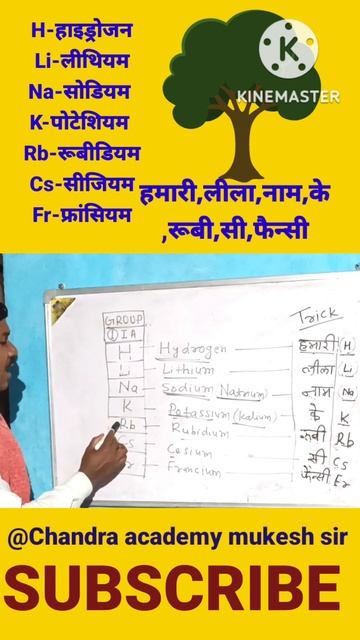 H-हाइड्रोजन
Li-लीथियम
Na-सोडियम
K-पोटेशियम
Rb-रूबीडियम
Cs-सीजियम
Fr-फ्रांसियम
KINEMASTER
हमारी,लीला,नाम,के
,रूबी,सी,फैन्सी
Trick
GROUP
I IA
H Hydrogen हमारी (H)
Li Lithium लीला (Li)
Na Sodium Natrium) नाम (Na)
K Potassium (Kalium) के K
Rb Rubidium रूबी Rb
Cs Cesium सी Cs
Fr Francium फैन्सी Fr
@Chandra academy mukesh sir
SUBSCRIBE